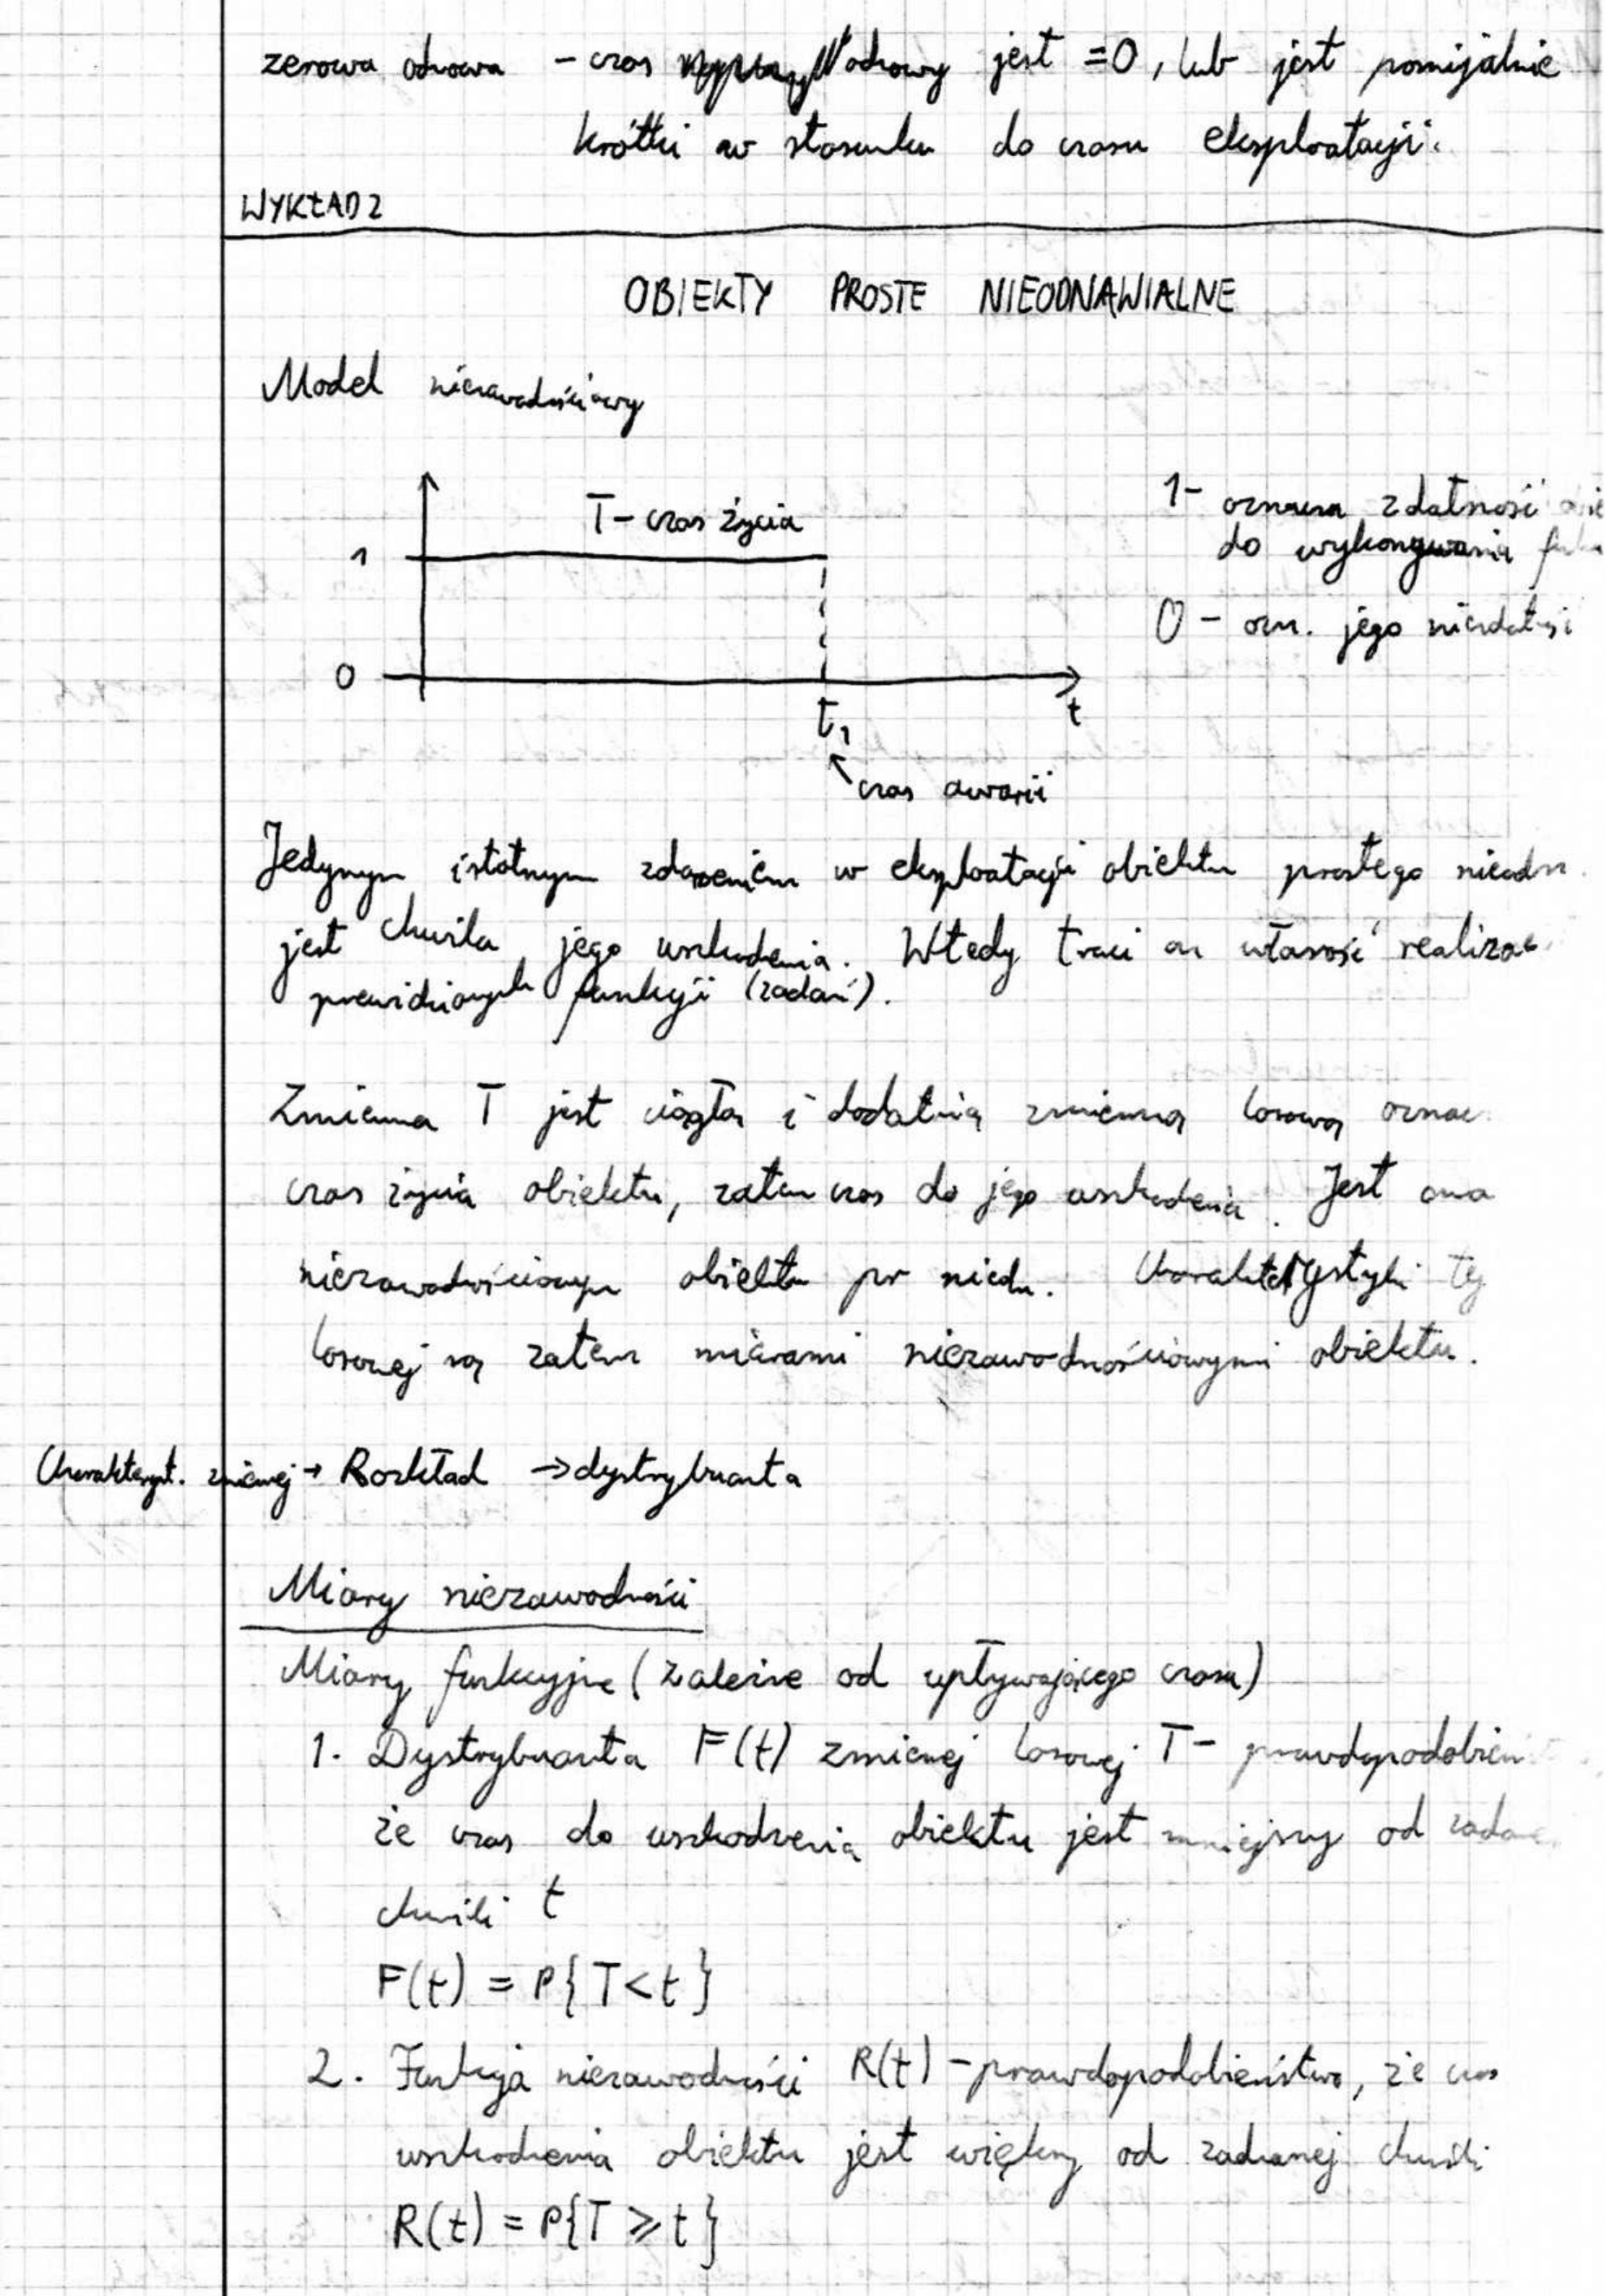 zerowa odnowa - czas odnowy jest =0, lub jest pomijalnie
krótki w stosunku do czasu eksploatacji.
WYKŁAD 2
OBIEKTY PROSTE NIEODNAWIALNE
Model niezawodnościowy
T - czas życia
1
0
t
t₁
czas awarii
1 - oznacza zdatność
do wykonywania
0 - ozn. jego niezdatność
Jedynym istotnym zdarzeniem w eksploatacji obiektu prostego nieodn.
jest chwila jego uszkodzenia. Wtedy traci on własność
przewidzianych funkcji (zadań).
Zmienna T jest ciągłą i dodatnią zmienną losową
czas życia obiektu, zatem czas do jego uszkodzenia. Jest ona
niezawodnościowym obiektu pr nieodn. Charakterystyki tej
losowej są zatem miarami niezawodnościowymi obiektu.
Charakteryst. zmiennej → Rozkład → dystrybuanta
Miary niezawodności
Miary funkcyjne (zależne od upływającego czasu)
1. Dystrybuanta F(t) zmiennej losowej T -
że czas do uszkodzenia obiektu jest mniejszy od
chwili t
F(t) = P{T<t}
2. Funkcja niezawodności R(t) - prawdopodobieństwo, że czas
uszkodzenia obiektu jest większy od zadanej chwili
R(t) = P{T ⩾ t}